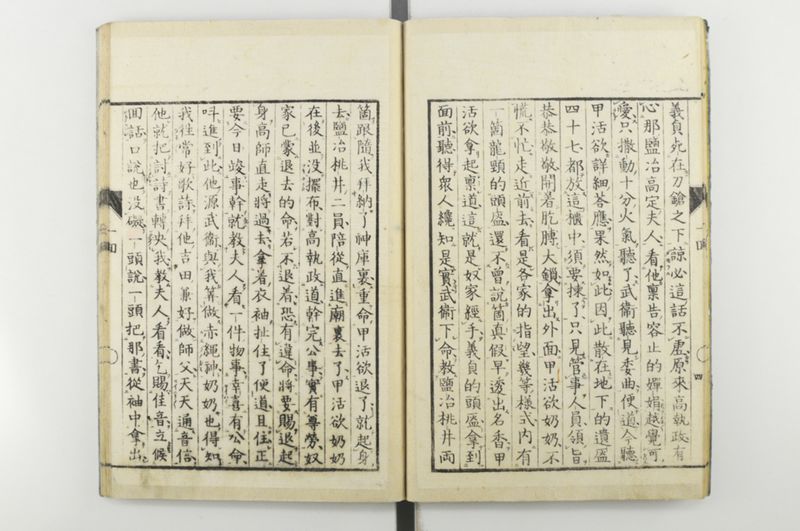 義貞死在刀鎗之下諒必這話不虛原來高執政有
心那鹽冶高定夫人看他稟告容止的嬋娟越覺可
愛只撒動十分火氣聽了武衞聽見委曲便道今聽
甲活欲詳細答應果然如此因此散在地下的遺盔
四十七都放這櫃中須要揀了只見管事人員領旨
恭恭敬敬開着肐膊大鎖拿出外面甲活欲奶奶不
慌不忙走近前去看是各家的指望幾等樣式內有
一箇龍頭的頭盔還不曾說箇眞假早透出名香甲
活欲拿起稟道這就是奴家經手義貞的頭盔拿到
面前聽得衆人纔知是實武衞下命教鹽冶桃井兩
箇跟隨我拜納了神庫裏重命甲活欲退了就起身
去鹽冶桃井二員陪從直進廟裏去了甲活欲奶奶
在後並沒擺布對高執政道幹完公事實有辱勞奴
家已蒙退去的命若不退着恐有違命將要賜退起
身高師直走將過去拿着衣袖扯住了便道且住正
要今日竣事幹就教夫人看一件物事幸喜有公命
呌進到此他源武衞與我筭做赤繩神奶奶也得知
我往常好歌詠拜他吉田兼好做師父天天通音信
他就把討詩書轉央我教夫人看看乞賜佳音立候
回話口說也没礙一頭說一頭把那書從袖中拿出
四